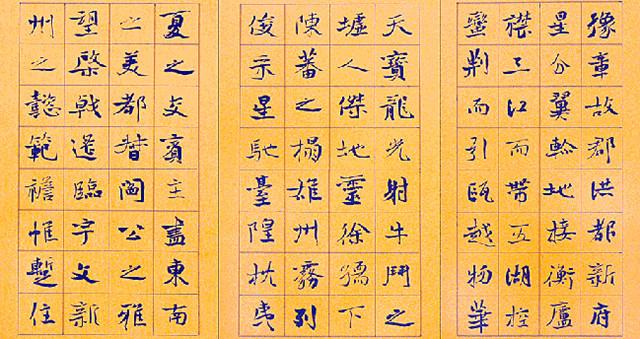 豫章故郡洪都新府
星分翼軫地接衡廬
襟三江而帶五湖控
蠻荊而引甌越物華
天寶龍光射牛鬥之
墟人傑地靈徐孺下
陳蕃之榻雄州霧列
俊采星馳臺隍枕夷
夏之交賓主盡東南
之美都督閻公之雅
望棨戟遙臨宇文新
州之懿範襜帷暫住